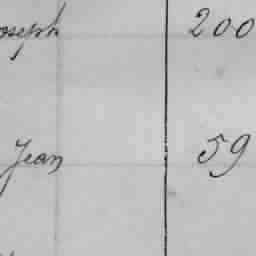 oseph 200
Jean 59